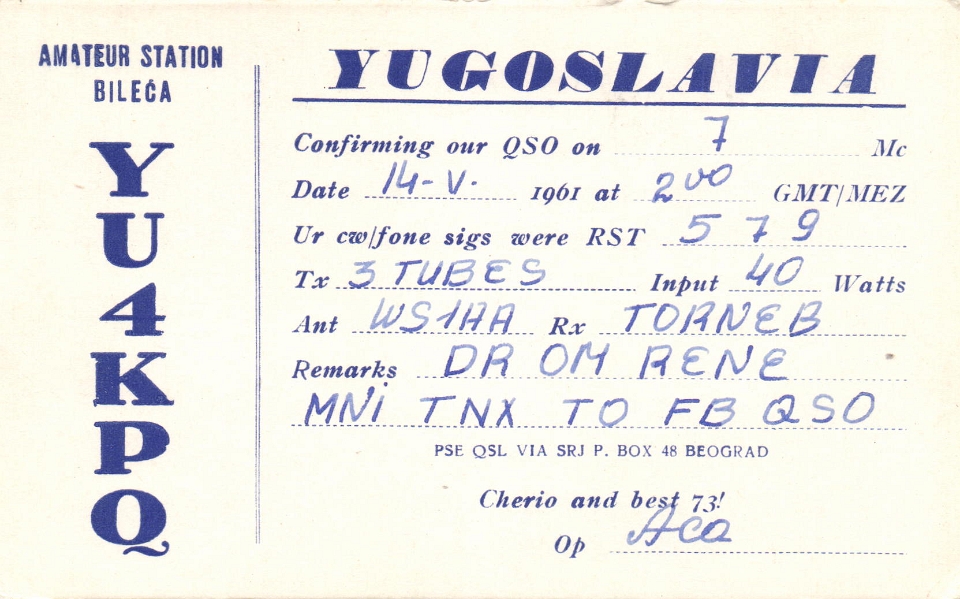 AMATEUR STATION
BILEĆA
YU4KPQ
YUGOSLAVIA
Confirming our QSO on 7 Mc
Date 14-V. 1961 at 2 00 GMT/MEZ
Ur cw/fone sigs were RST 5 7 9
Tx 3 TUBES Input 40 Watts
Ant WS1AA Rx TORNEB
Remarks DR OM RENE
MNi TNX TO FB QSO
PSE QSL VIA SRJ P. BOX 48 BEOGRAD
Cherio and best 73!
Op Aca